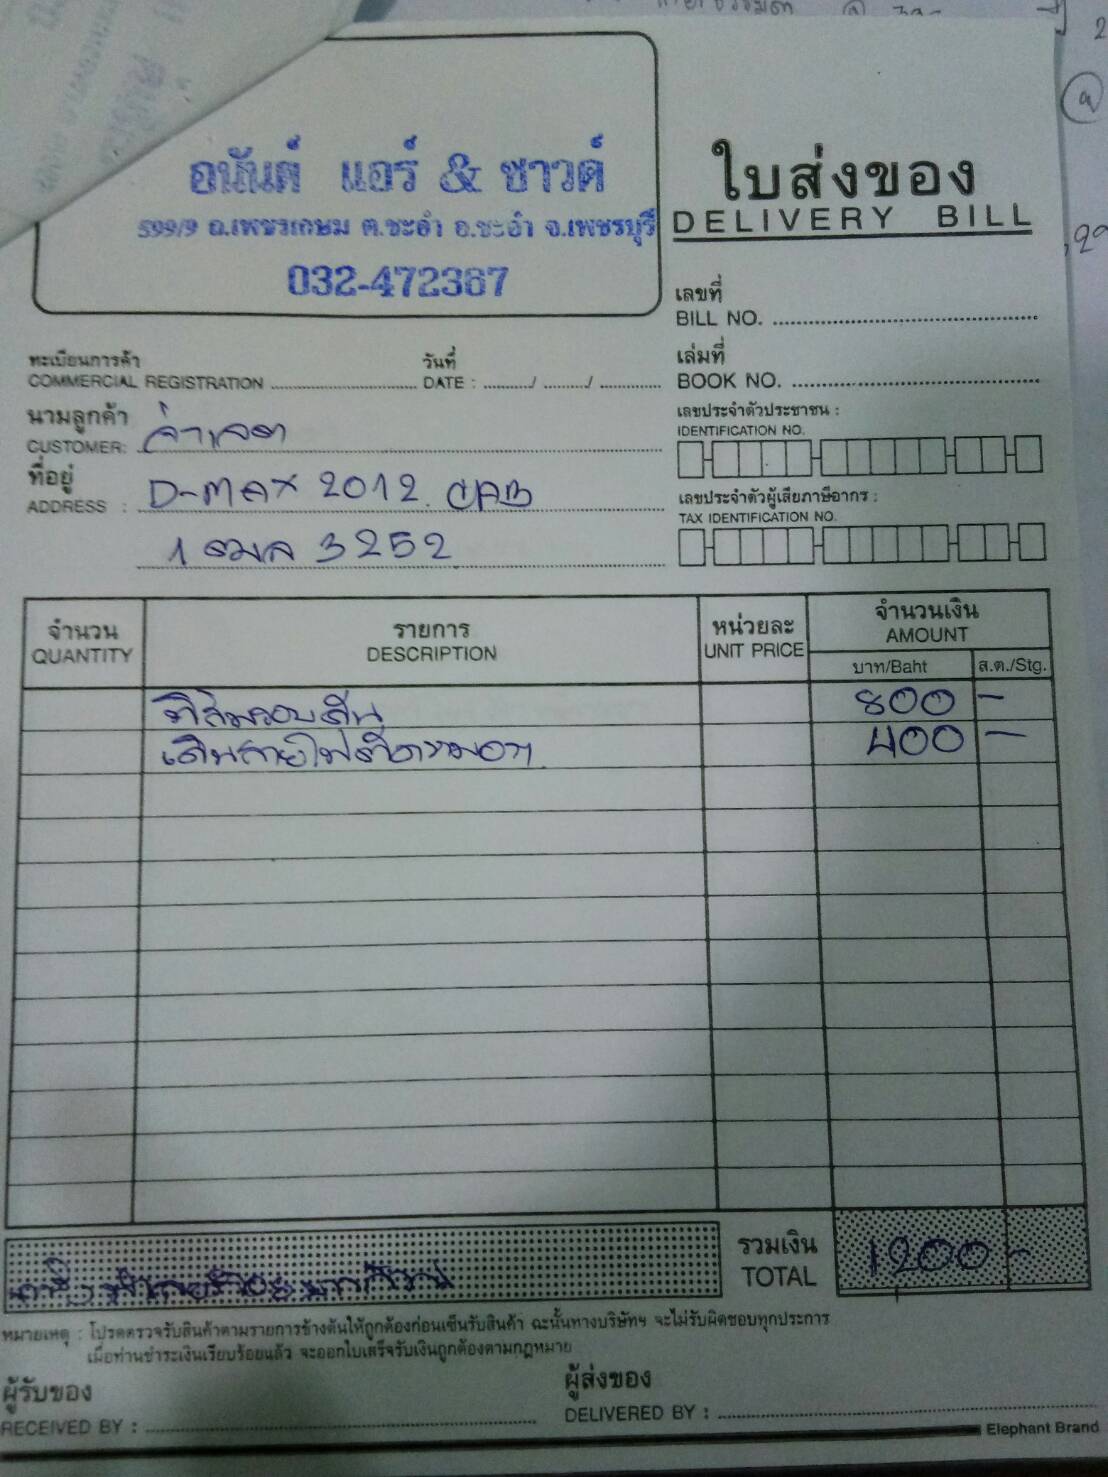 อนันต์ แอร์ & ซาวด์
599/9 ถ.เพชรเกษม ต.ชะอำ อ.ชะอำ จ.เพชรบุรี
032-472367
ใบส่งของ
DELIVERY BILL
เลขที่
BILL NO.
ทะเบียนการค้า
COMMERCIAL REGISTRATION
วันที่
DATE : / /
เล่มที่
BOOK NO.
นามลูกค้า
CUSTOMER:
เลขประจำตัวประชาชน :
IDENTIFICATION NO.
ที่อยู่
ADDRESS : D-MAX 2012 CAB
เลขประจำตัวผู้เสียภาษีอากร :
TAX IDENTIFICATION NO.
1 ฒผล 3252
จำนวน
QUANTITY
รายการ
DESCRIPTION
หน่วยละ
UNIT PRICE
จำนวนเงิน
AMOUNT
บาท/Baht ส.ต./Stg.
ฟิล์มรอบคัน 800 -
เดินสายไฟ 400 -
รวมเงิน
TOTAL
1200 -
หมายเหตุ : โปรดตรวจรับสินค้าตามรายการข้างต้นให้ถูกต้องก่อนเซ็นรับสินค้า ฉะนั้นทางบริษัทฯ จะไม่รับผิดชอบทุกประการ
เมื่อท่านชำระเงินเรียบร้อยแล้ว จะออกใบเสร็จรับเงินถูกต้องตามกฎหมาย
ผู้รับของ
RECEIVED BY :
ผู้ส่งของ
DELIVERED BY :
Elephant Brand